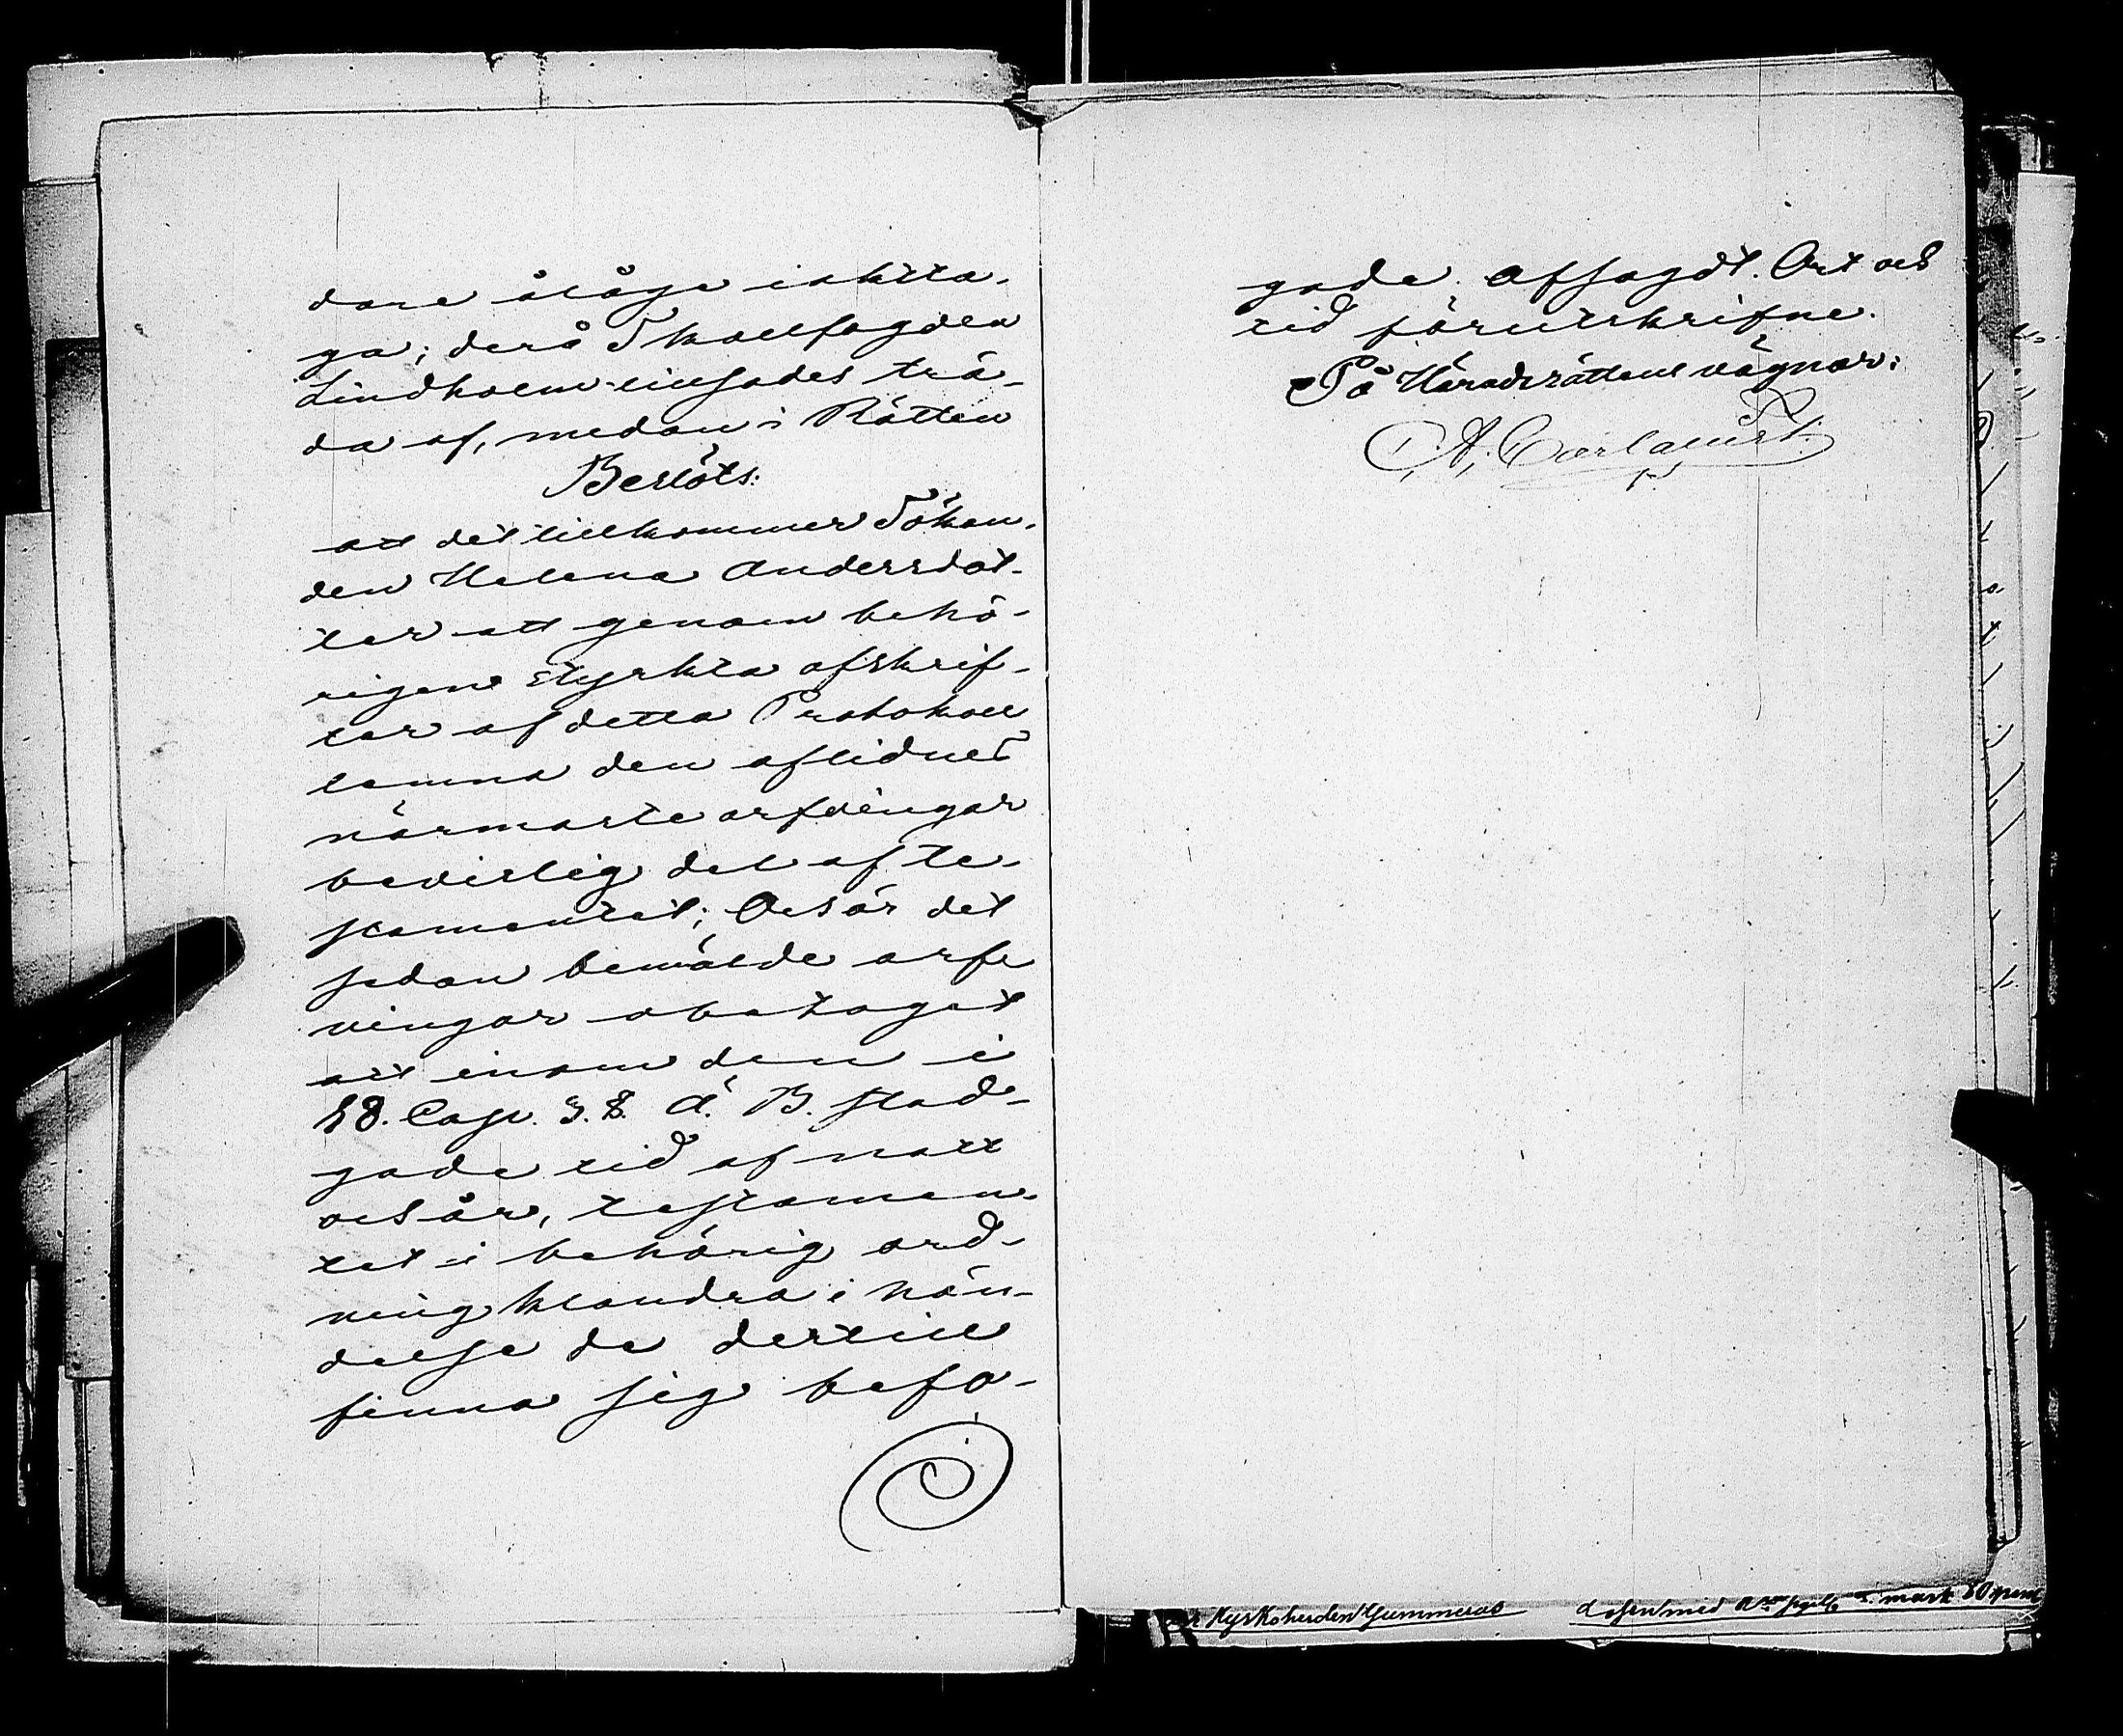 dare ålåge iaktta-
ga; derå Skallfogden
Lindholm tillsades trä-
da af, medan i Rätten
Beslöts:
att det tillkommer Sökan-
den Helena Andersdot-
ter att genom behö-
rigen styrkta afskrif-
ter af detta Protokoll
lemna den aflidnes
närmaste arfvingar
bevislig del af te-
stamentet; Och är det
sedan bemälde arf-
vingar obetaget
att inom den i
18. Cap. 3. §. Ä. B. stad-
gade tid af natt
och år, testamen-
tet i behörig ord-
ning klandra i hän-
delse de dertill
finna sig befo-
gade. Afsagdt. Ort och
tid förutskrifne.
På Häradsrättens vägnar:
Carlquist.
Kyrkoherden Gummerus
Lösen med mark 80 peni